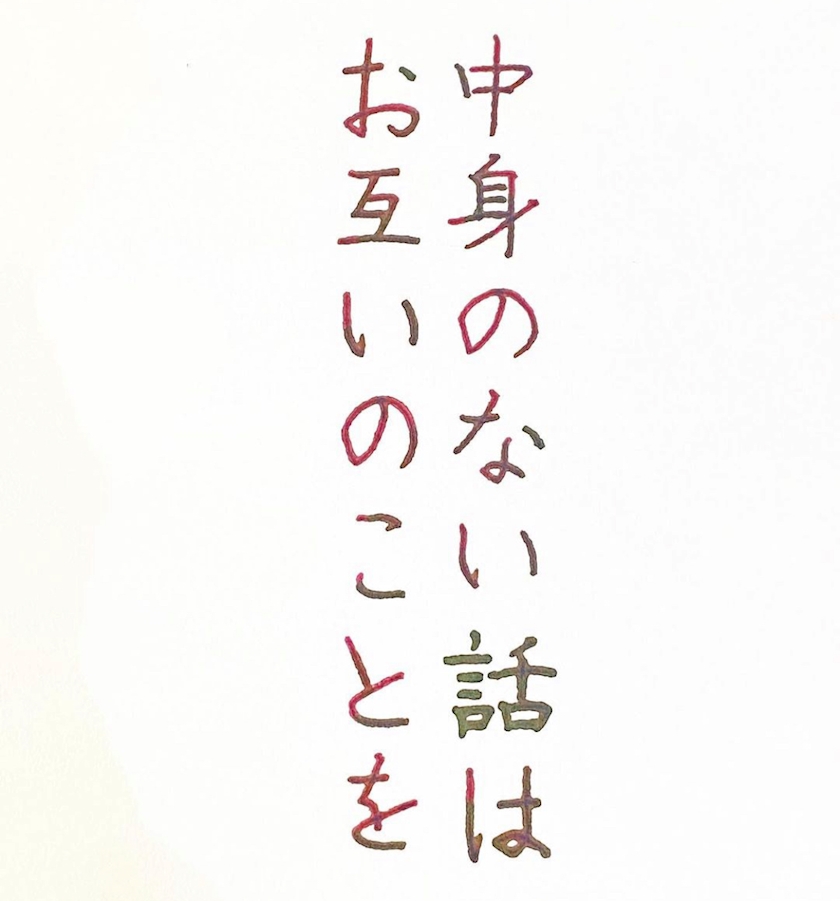 中身のない話は
お互いのことを